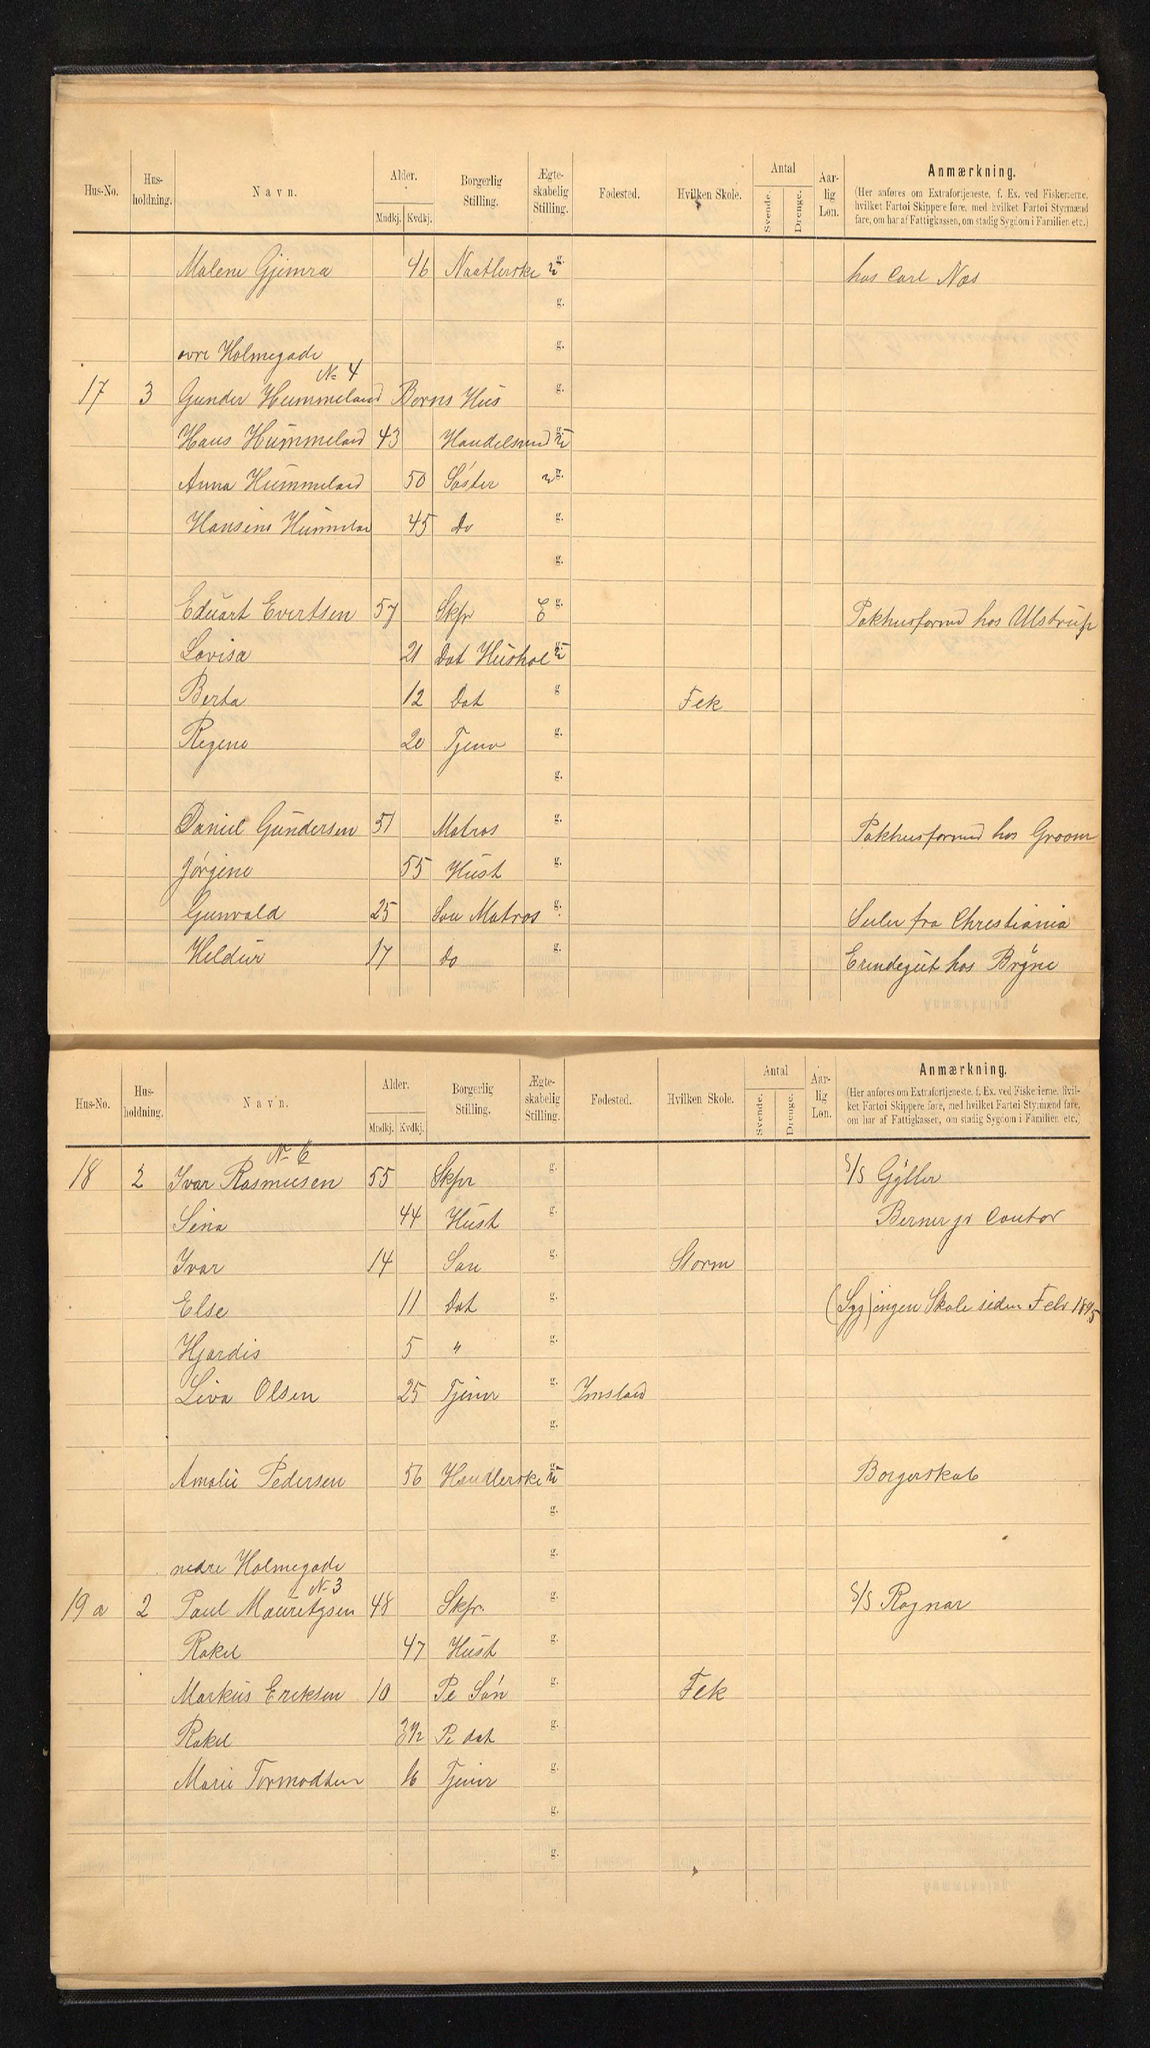 Hus-No. Hus-holdning. Navn. Alder. Mndkj. Kvdkj. Borgerlig Stilling. Ægte-skabelig Stilling. Fødested. Hvilken Skole. Antal Svende. Drenge. Aar-lig Løn. Anmærkning.
(Her anføres om Extrafortjeneste, f. Ex. ved Fiskerierne,
hvilket Fartøi Skippere føre, med hvilket Fartøi Styrmænd
fare, om har af Fattigkassen, om stadig Sygdom i Familien etc.)
Malene Gjimra 46 g. hos Carl Næs
g.
øvre Holmegade g.
No 4
17 3 Gunder Hummeland Børns Hus g.
Hans Hummeland 43 Handelsmd g.
Anna Hummeland 50 Søster g.
Hansine Hummelan 45 Do g.
g.
Eduart Evertsen 57 Skpr E g. Pakhusformd hos Ulstrup
Lovisa 21 Dat Hushol g.
Berta 12 Dat g Fck
Regene 20 Tjener g.
g.
Daniel Gundersen 51 Matros g. Pakhusformd hos Groom
Jørgine 55 Hust g.
Gunvald 25 Søn Matros g. Seiler fra Christiania
Heldur 17 Do g. Erindegut hos Bryne
Hus-No. Hus-holdning. Navn. Alder. Mndkj. Kvdkj. Borgerlig Stilling. Ægte-skabelig Stilling. Fødested. Hvilken Skole. Antal Svende. Drenge. Aar-lig Løn. Anmærkning.
(Her anføres om Extrafortjeneste, f. Ex. ved Fiskerierne, hvil-
ket Fartøi Skippere føre, med hvilket Fartøi Styrmænd fare,
om har af Fattigkassen, om stadig Sygdom i Familien etc.)
No 6
18 2 Ivar Rasmusen 55 Skpr g. S/S Gyller
Sina 44 Hust g. Berner jr Contor
Ivar 14 Søn g. Storm
Else 11 Dat g. (Syg) ingen Skole siden Febr 1895
Hjørdis 5 " g.
Liva Olsen 25 Tjener g. Imsland
g.
Amalie Pedersen 56 Handlerske g. Borgerskab
g.
nedre Holmegade g.
No 3
19 a 2 Paul Mauritzsen 48 Skpr. g. S/S Ragnar
Rakel 47 Hust g.
Markus Eriksen 10 Pl Søn g. Fck
Rakel 3 1/2 Pl dat g.
Marie Tormodsen 16 Tjener g.
g.
g.